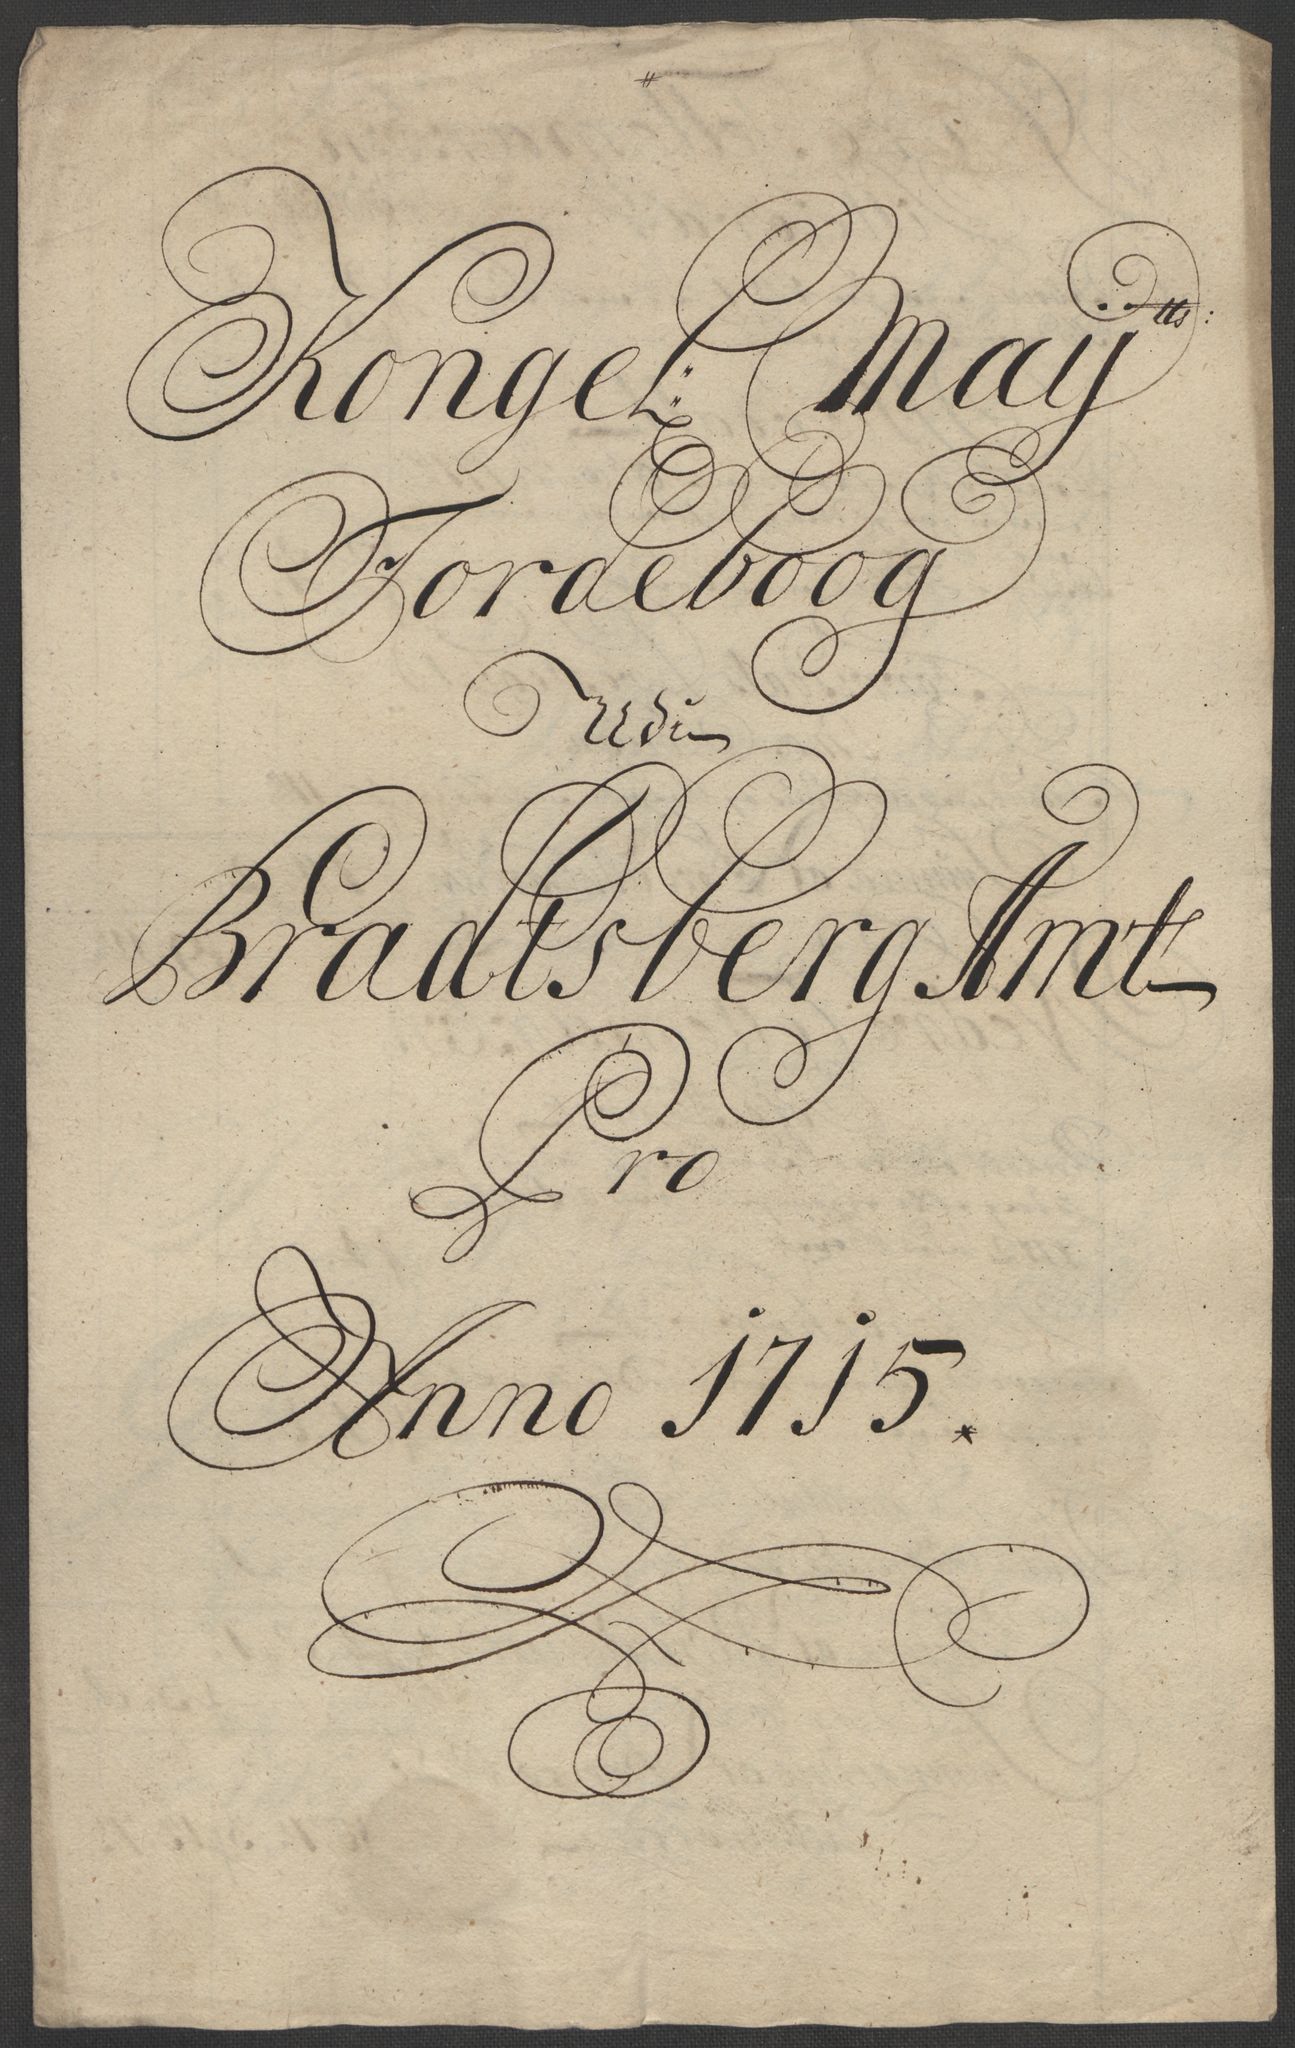 Kongel: May tts:
Jordeboog
Udi
Bradtsberg Amt
Pro
Anno 1715.